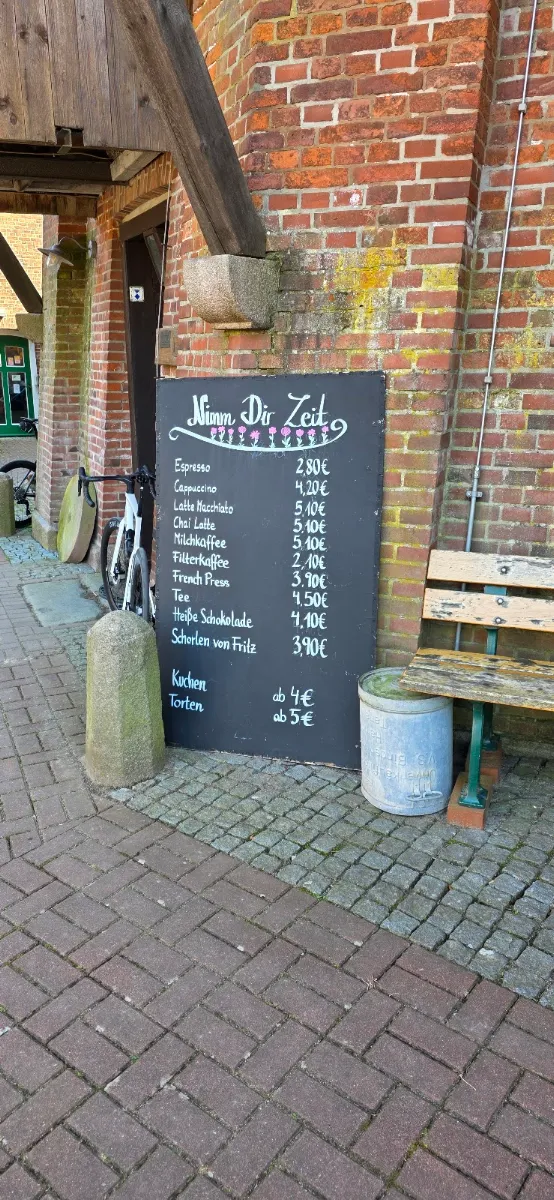 Nimm Dir Zeit
Espresso 2,80€
Cappuccino 4,20€
Latte Macchiato 5,10€
Chai Latte 5,10€
Milchkaffee 5,10€
Filterkaffee 2,10€
French Press 3,90€
Tee 4,50€
Heiße Schokolade 4,10€
Schorlen von Fritz 3,90€
Kuchen ab 4€
Torten ab 5€